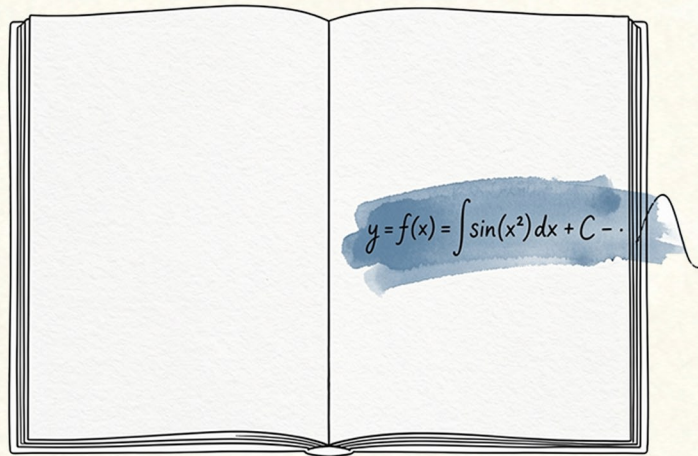 y = f(x) = ∫ sin(x²) dx + C – ·